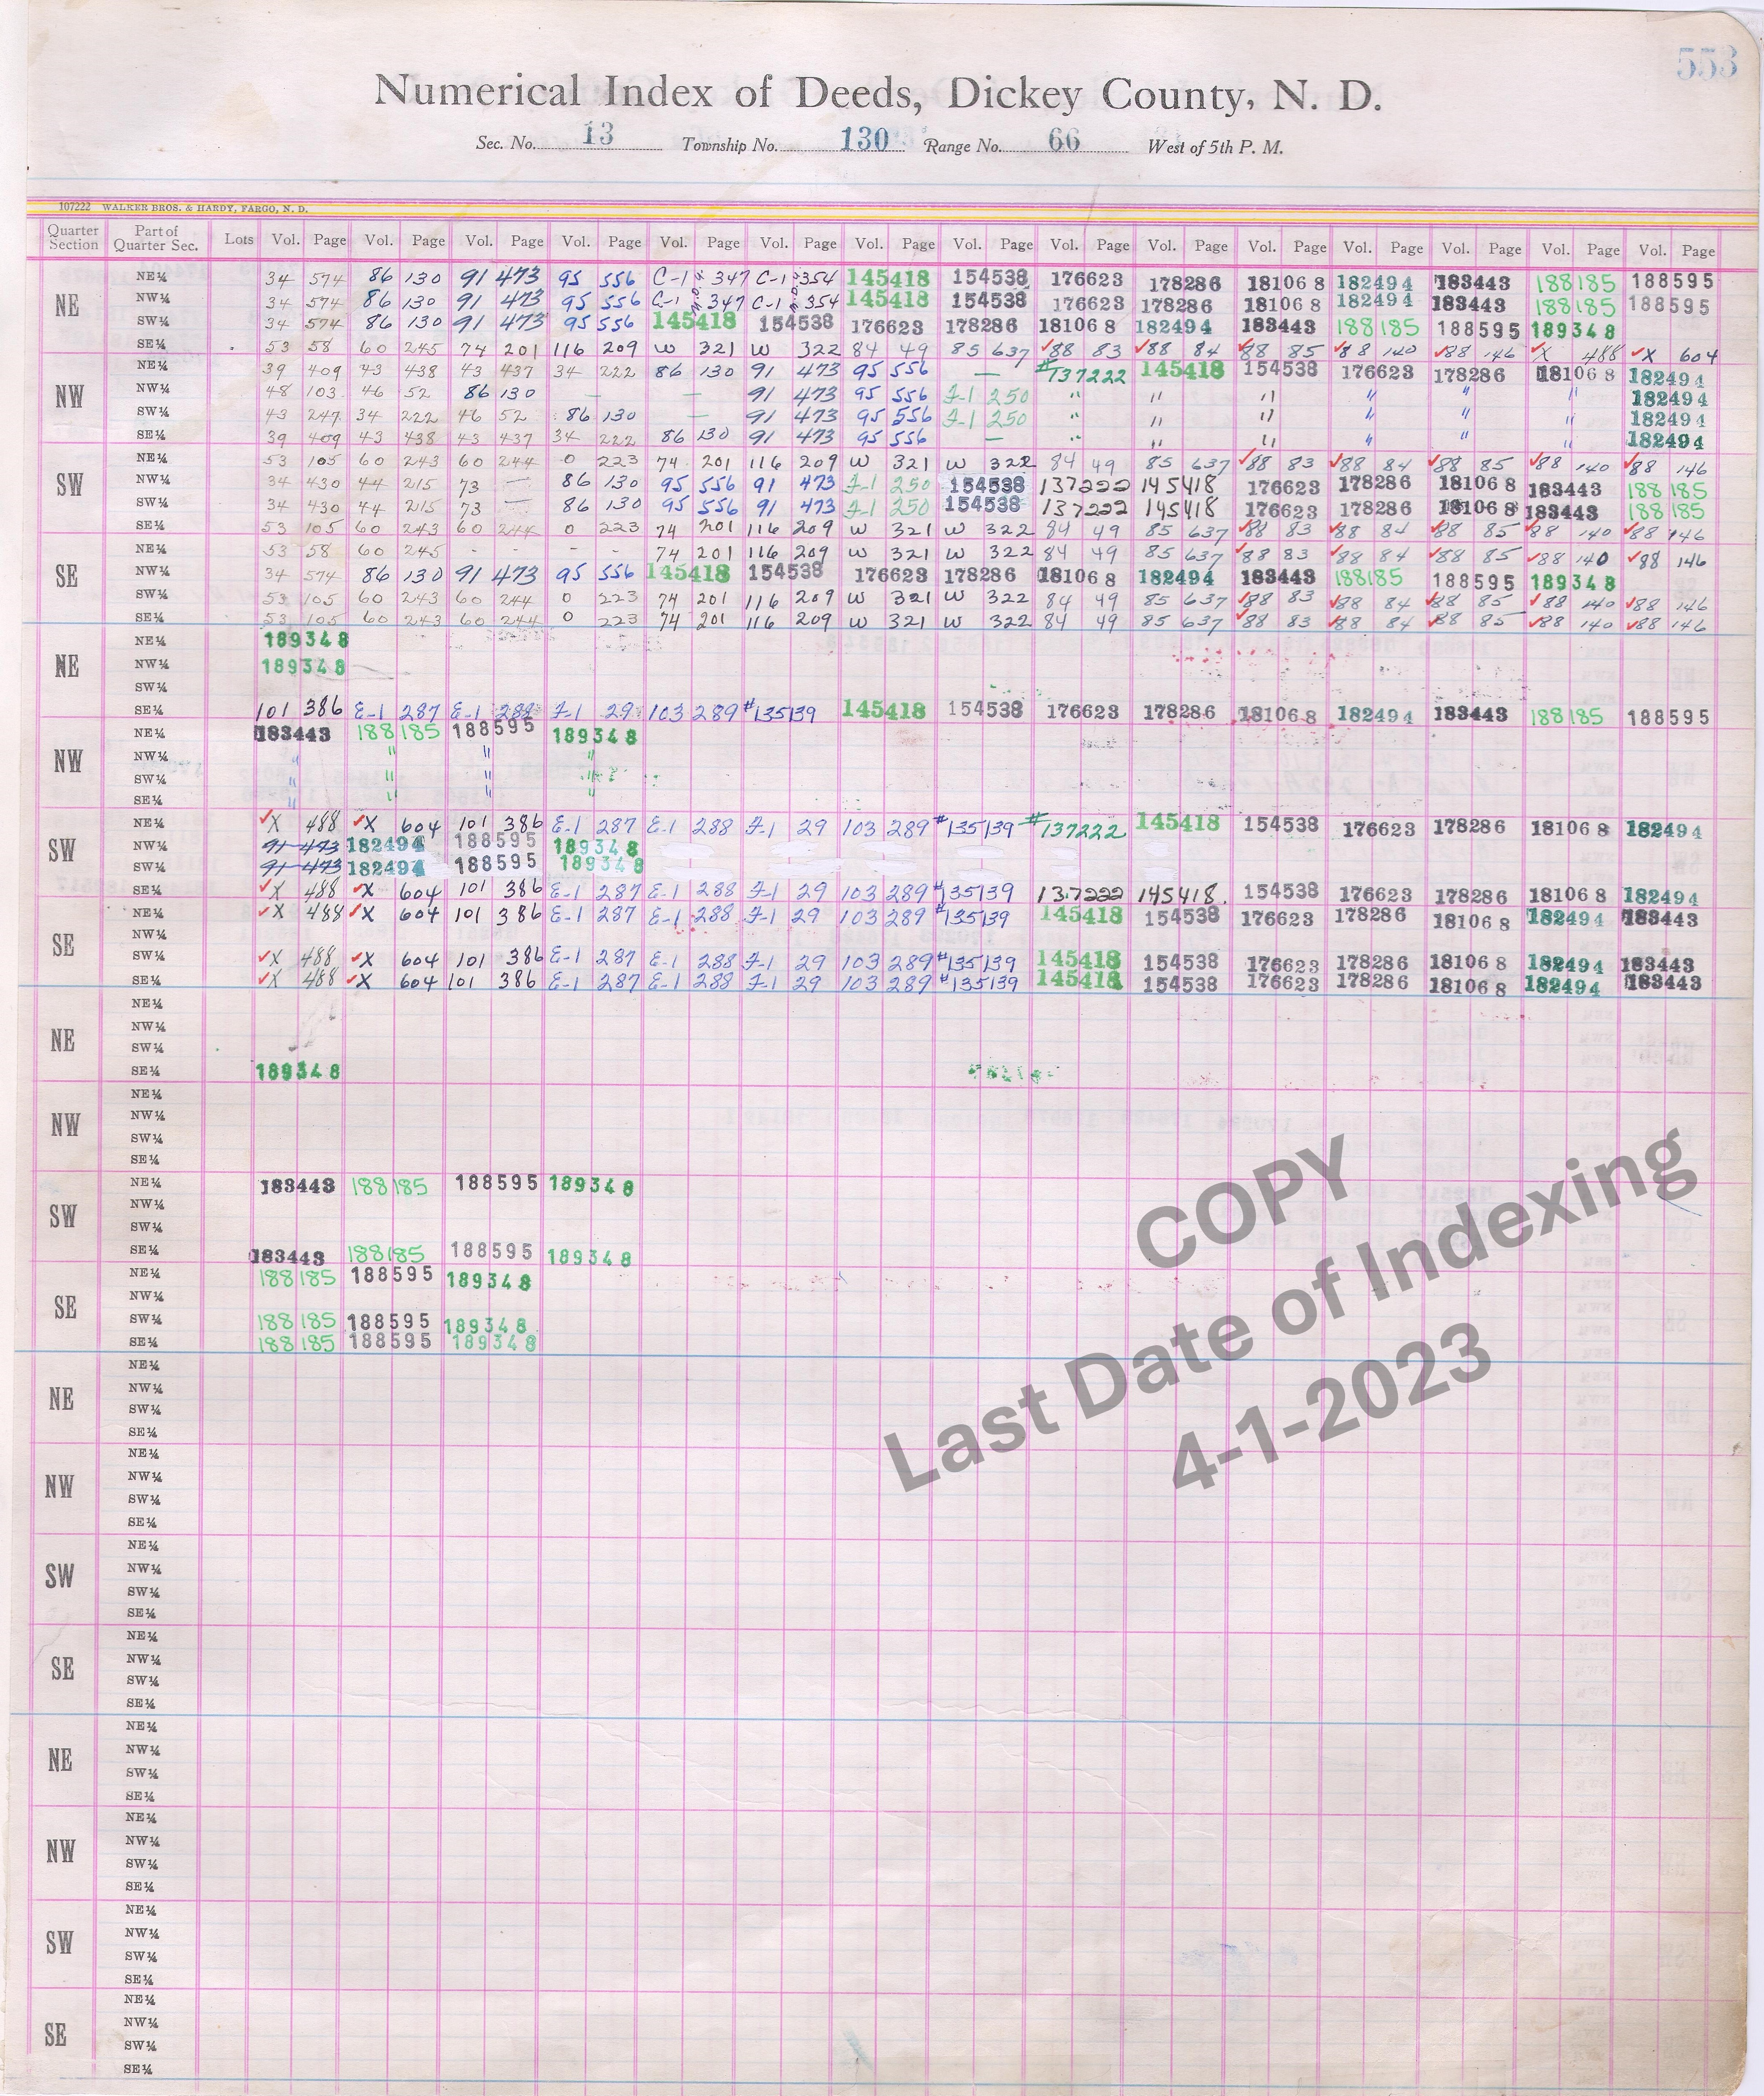 553
Numerical Index of Deeds, Dickey County, N. D.
Sec. No. 13 Township No. 130 Range No. 66 West of 5th P. M.
107222 WALKER BROS. & HARDY, FARGO, N. D.
Quarter Section Part of Quarter Sec. Lots Vol. Page Vol. Page Vol. Page Vol. Page Vol. Page Vol. Page Vol. Page Vol. Page Vol. Page Vol. Page Vol. Page Vol. Page Vol. Page Vol. Page Vol. Page
NE
NE¼ 34 574 86 130 91 473 95 556 C-1 347 C-1 354 145418 154538 176623 178286 181068 182494 183443 188185 188595
NW¼ 34 574 86 130 91 473 95 556 C-1 347 C-1 354 145418 154538 176623 178286 181068 182494 183443 188185 188595
SW¼ 34 574 86 130 91 473 95 556 145418 154538 176623 178286 181068 182494 183443 188185 188595 189348
SE¼ 53 58 60 245 74 201 116 209 W 321 W 322 84 49 85 637 ✓88 83 ✓88 84 ✓88 85 ✓88 140 ✓88 146 ✓X 488 ✓X 604
NW
NE¼ 39 409 43 438 43 437 34 222 86 130 91 473 95 556 — #137222 145418 154538 176623 178286 181068 182494
NW¼ 48 103 46 52 86 130 — — 91 473 95 556 F-1 250 " " " " " " 182494
SW¼ 43 247 34 222 46 52 86 130 — 91 473 95 556 F-1 250 " " " " " " 182494
SE¼ 39 409 43 438 43 437 34 222 86 130 91 473 95 556 — " " " " " " 182494
SW
NE¼ 53 105 60 243 60 244 0 223 74 201 116 209 W 321 W 322 84 49 85 637 ✓88 83 ✓88 84 ✓88 85 ✓88 140 ✓88 146
NW¼ 34 430 44 215 73 — 86 130 95 556 91 473 F-1 250 154538 137222 145418 176623 178286 181068 183443 188185
SW¼ 34 430 44 215 73 — 86 130 95 556 91 473 F-1 250 154538 137222 145418 176623 178286 181068 183443 188185
SE¼ 53 105 60 243 60 244 0 223 74 201 116 209 W 321 W 322 84 49 85 637 ✓88 83 ✓88 84 ✓88 85 ✓88 140 ✓88 146
SE
NE¼ 53 58 60 245 - - - - 74 201 116 209 W 321 W 322 84 49 85 637 ✓88 83 ✓88 84 ✓88 85 ✓88 140 ✓88 146
NW¼ 34 574 86 130 91 473 95 556 145418 154538 176623 178286 181068 182494 183443 188185 188595 189348
SW¼ 53 105 60 243 60 244 0 223 74 201 116 209 W 321 W 322 84 49 85 637 ✓88 83 ✓88 84 ✓88 85 ✓88 140 ✓88 146
SE¼ 53 105 60 243 60 244 0 223 74 201 116 209 W 321 W 322 84 49 85 637 ✓88 83 ✓88 84 ✓88 85 ✓88 140 ✓88 146
NE
NE¼ 189348
NW¼ 189348
SW¼
SE¼ 101 386 E-1 287 E-1 288 F-1 29 103 289 #135139 145418 154538 176623 178286 181068 182494 183443 188185 188595
NW
NE¼ 183443 188185 188595 189348
NW¼ " " " "
SW¼ " " " "
SE¼ " " "
SW
NE¼ ✓X 488 ✓X 604 101 386 E-1 287 E-1 288 F-1 29 103 289 #135139 #137222 145418 154538 176623 178286 181068 182494
NW¼ 91 473 182494 188595 189348
SW¼ 91 473 182494 188595 189348
SE¼ ✓X 488 ✓X 604 101 386 E-1 287 E-1 288 F-1 29 103 289 #135139 137222 145418 154538 176623 178286 181068 182494
SE
NE¼ ✓X 488 ✓X 604 101 386 E-1 287 E-1 288 F-1 29 103 289 #135139 145418 154538 176623 178286 181068 182494 183443
NW¼
SW¼ ✓X 488 ✓X 604 101 386 E-1 287 E-1 288 F-1 29 103 289 #135139 145418 154538 176623 178286 181068 182494 183443
SE¼ ✓X 488 ✓X 604 101 386 E-1 287 E-1 288 F-1 29 103 289 #135139 145418 154538 176623 178286 181068 182494 183443
NE
NE¼
NW¼
SW¼
SE¼ 189348
NW
NE¼
NW¼
SW¼
SE¼
SW
NE¼ 183443 188185 188595 189348
NW¼
SW¼
SE¼ 183443 188185 188595 189348
SE
NE¼ 188185 188595 189348
NW¼
SW¼ 188185 188595 189348
SE¼ 188185 188595 189348
COPY
Last Date of Indexing
4-1-2023
NE
NE¼
NW¼
SW¼
SE¼
NW
NE¼
NW¼
SW¼
SE¼
SW
NE¼
NW¼
SW¼
SE¼
SE
NE¼
NW¼
SW¼
SE¼
NE
NE¼
NW¼
SW¼
SE¼
NW
NE¼
NW¼
SW¼
SE¼
SW
NE¼
NW¼
SW¼
SE¼
SE
NE¼
NW¼
SW¼
SE¼